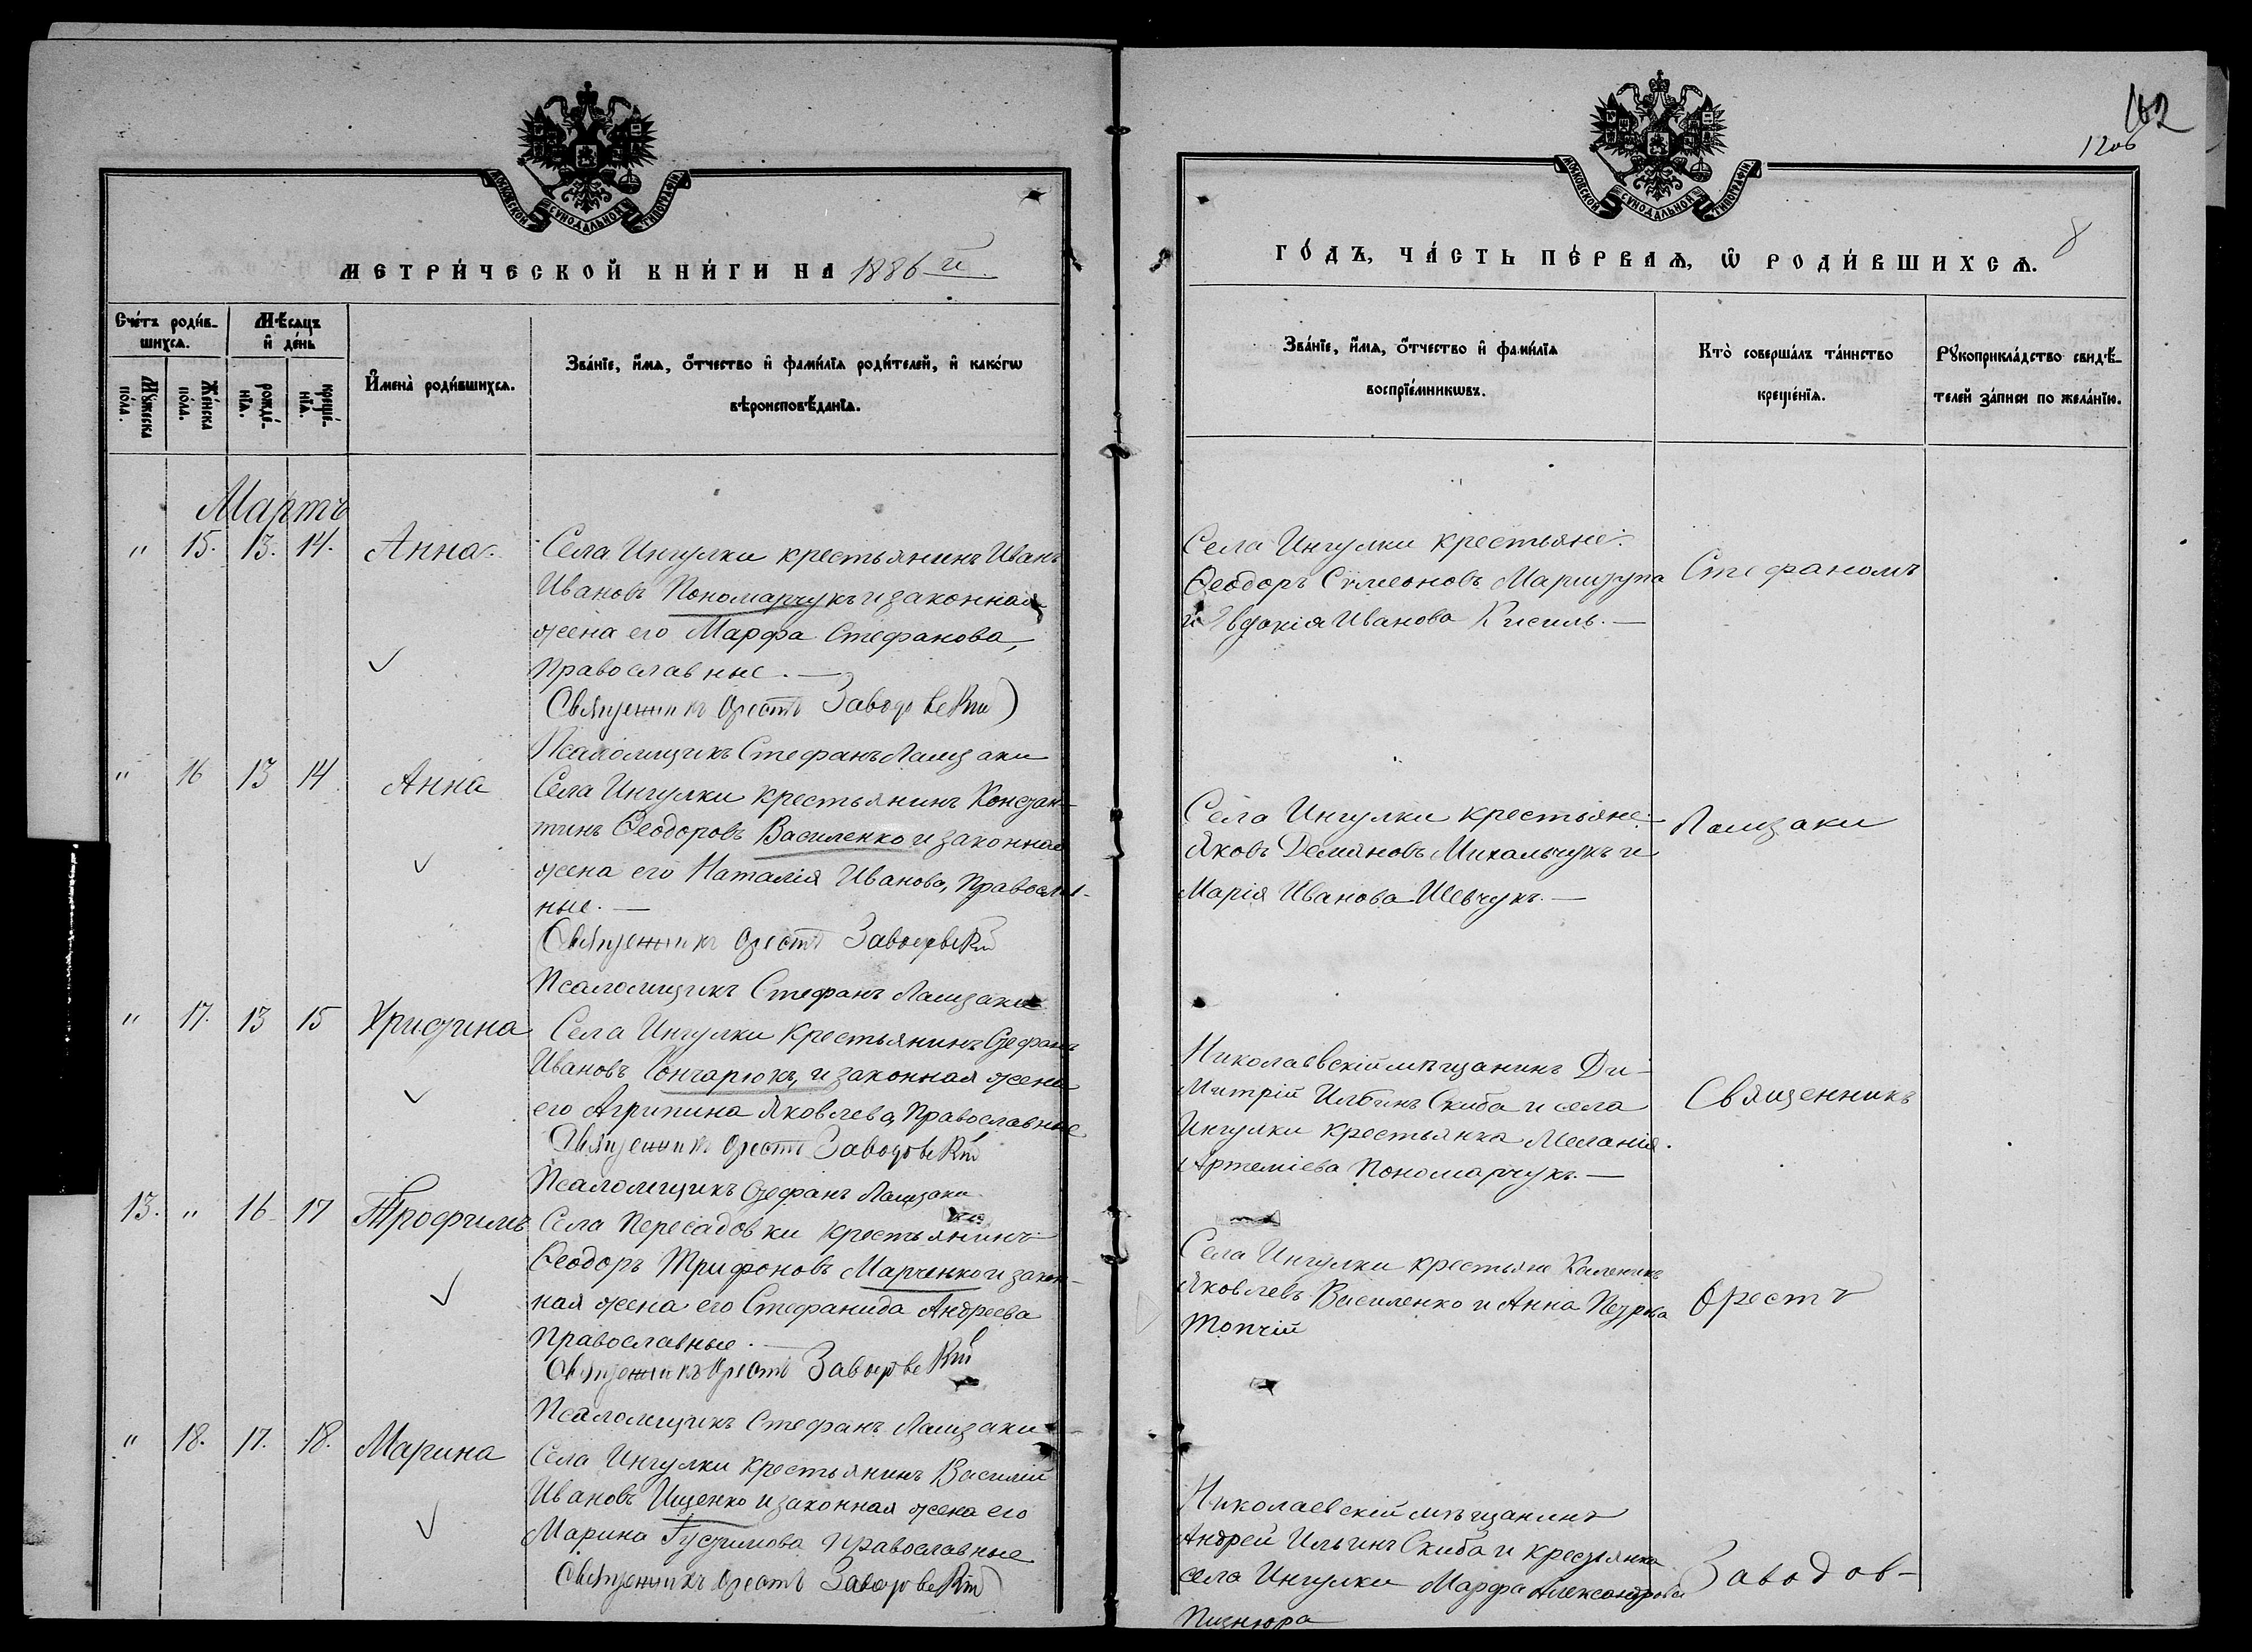 МОСКОВСКОЙ СѴНОДАЛЬНОЙ ТИПОГРАФІИ
МЕТРИ́ЧЕСКОЙ КНИ́ГИ НА 1886 й
Сче́тъ роди́в-
шихсѧ.
Мѣ́сѧцъ
и҆ де́нь
Мꙋ́жеска по́ла.
Же́нска по́ла.
рожде́-нїѧ.
креще́-нїѧ.
И҆мена̀ роди́вшихсѧ.
Зва́нїе, и҆́мѧ, ѻ҆́тчество и҆ фамі́лїѧ роди́телей, и҆ како́гѡ
вѣроисповѣ́данїѧ.
Мартъ
" 15. 13. 14. Анна.
Села Ингулки крестьянинъ Иванъ
Ивановъ Пономарчукъ и законная
жена его Марфа Стефанова,
православные. —
Священникъ Орестъ Заводовскій
Псаломщикъ Стефанъ
" 16 13 14 Анна
Села Ингулки крестьянинъ Констан-
тинъ Ѳеодоровъ Василенко и законная
жена его Наталія Иванова, Православ-
ные. —
Священникъ Орестъ Заводовскій
Псаломщикъ Стефанъ
" 17. 13 15 Христина
Села Ингулки крестьянинъ Стефанъ
Ивановъ Гончарюкъ, и законная жена
его Агрипина Яковлева, Православные
Священникъ Орестъ Заводовскій
Псаломщикъ Стефанъ
13. " 16 17 Трофимъ
Села Пересадовки крестьянинъ
Ѳеодоръ Трифоновъ Марченко и закон-
ная жена его Стефанида Андреева
православные. —
Священникъ Орестъ Заводовскій
Псаломщикъ Стефанъ
" 18. 17. 18. Марина
Села Ингулки крестьянинъ Василій
Ивановъ Ищенко и законная жена его
Марина Густимова православные
Священникъ Орестъ Заводовскій
162
12об
МОСКОВСКОЙ СѴНОДАЛЬНОЙ ТИПОГРАФІИ
8
ГО́ДЪ, ЧА́СТЬ ПЕ́РВАѦ, Ѡ҆ РОДИ́ВШИХСѦ.
Зва́нїе, и҆́мѧ, ѻ҆́тчество и҆ фамі́лїѧ
воспрїе́мникѡвъ.
Кто̀ соверша́лъ та́инство
креще́нїѧ.
Рꙋкоприкла́дство свидѣ́-
телей за́писи по жела́нїю.
Села Ингулки крестьяне:
Ѳеодоръ Симеоновъ Маршрупа
и Евдокія Иванова Кисиль. —
Стефаномъ
Села Ингулки крестьяне:
Яковъ Демяновъ Михальчукъ и
Марія Иванова Шевчукъ. —
Николаевскій мѣщанинъ Ди-
митрій Скиба и села
Ингулки крестьянка Меланія
Артеміева Пономарчукъ. —
Священникъ
Села Ингулки крестьяне Каленикъ
Яковлевъ Василенко и Анна Петрова
Топчій
Орестъ
Николаевскій мѣщанинъ
Андрей Ильинъ Скиба и крестьянка
села Ингулки Марфа Александрова
Заводов-